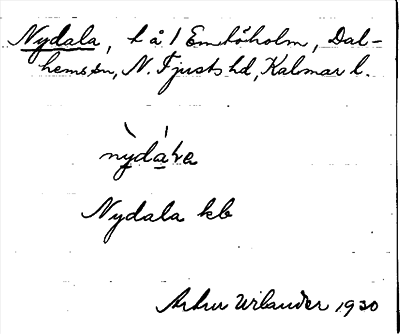 Nydala, t å / Emtöholm, Dal-
hems sn, N. Tjusts hd, Kalmar l.
Nydala kb
Artur Wilander 1930